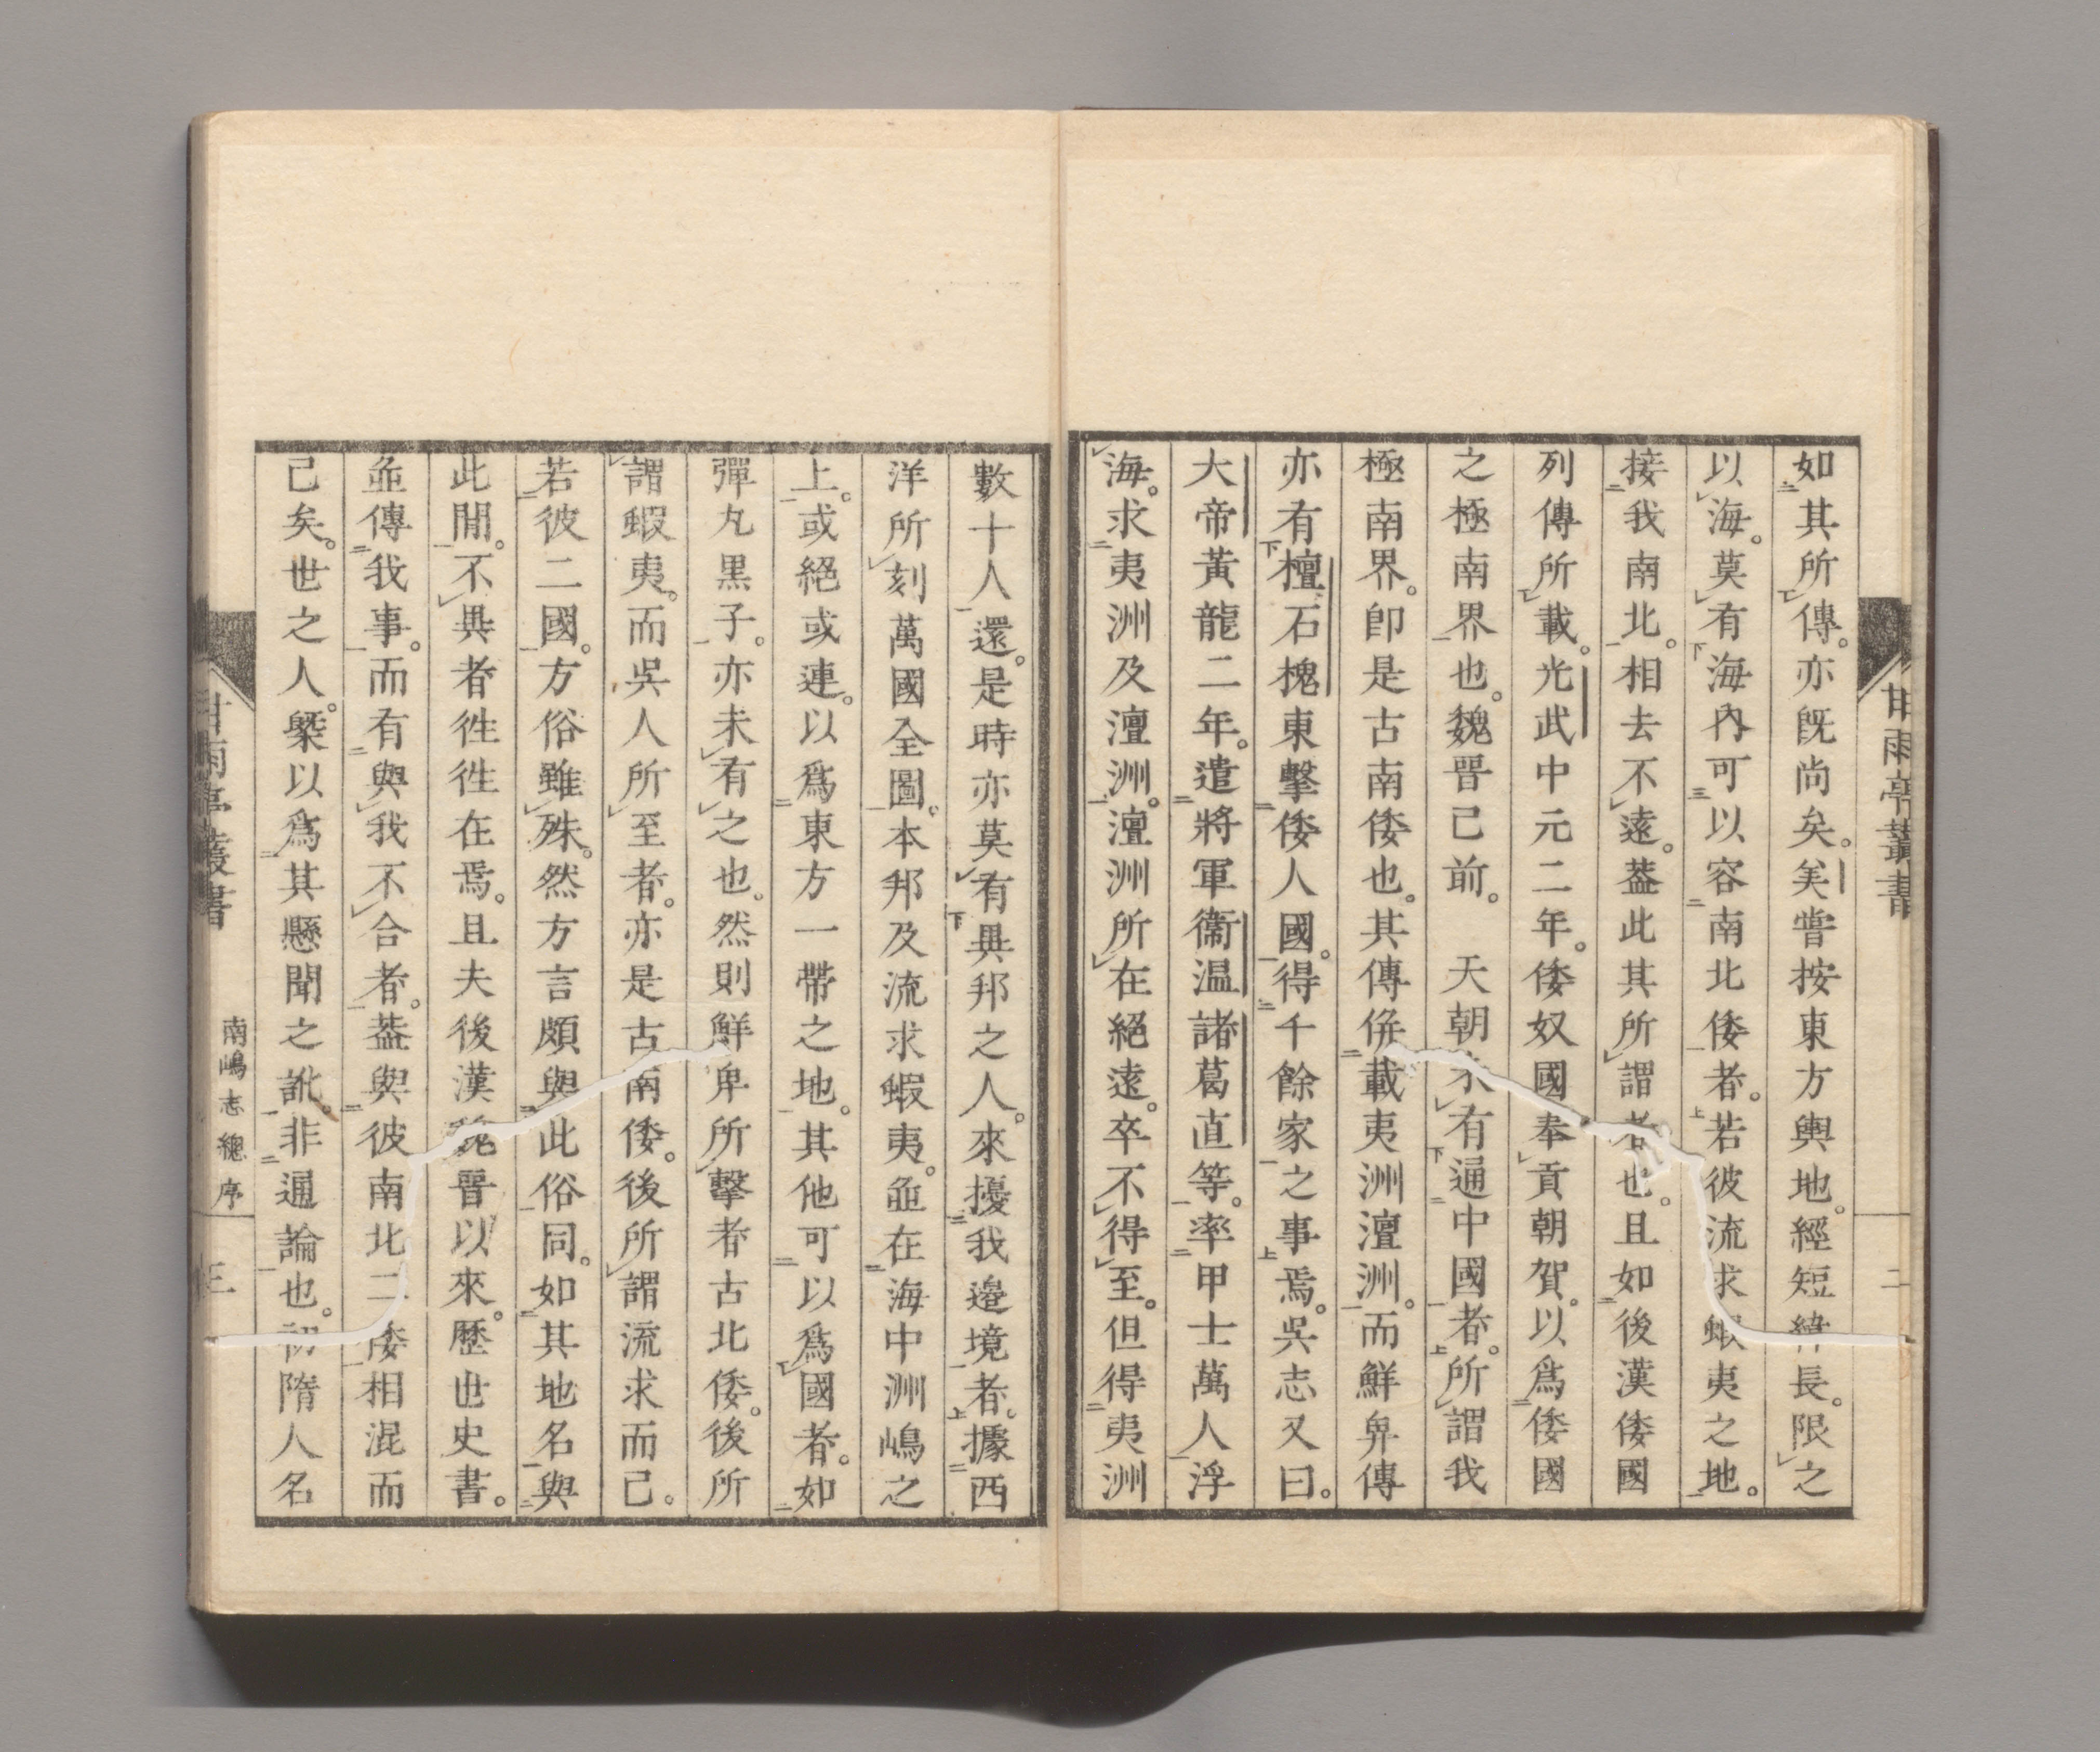 如其所傳。亦既尚矣。美嘗按東方輿地。經短緯長。限之
以海。莫有海內可以容南北倭者。若彼流求蝦夷之地。
接我南北。相去不遠。葢此其所謂者也。且如後漢倭國
列傳所載。光武中元二年。倭奴國奉貢朝賀。以爲倭國
之極南界也。魏晉已前。　天朝未有通中國者。所謂我
極南界。卽是古南倭也。其傳倂載夷洲澶洲。而鮮卑傳
亦有檀石槐東擊倭人國。得千餘家之事焉。吳志又曰。
大帝黃龍二年。遣將軍衞温諸葛直等。率甲士萬人浮
海。求夷洲及澶洲。澶洲所在絕遠。卒不得至。但得夷洲
甘雨亭叢書
二
數十人還。是時亦莫有異邦之人。來擾我邊境者。據西
洋所刻萬國全圖。本邦及流求蝦夷。並在海中洲嶋之
上。或絕或連。以爲東方一帶之地。其他可以爲國者。如
彈丸黑子。亦未有之也。然則鮮卑所擊者古北倭。後所
謂蝦夷。而吳人所至者。亦是古南倭。後所謂流求而已。
若彼二國。方俗雖殊。然方言頗與此俗同。如其地名與
此間。不異者徃徃在焉。且夫後漢魏晉以來。歷世史書。
並傳我事。而有與我不合者。葢與彼南北二倭相混而
已矣。世之人。槩以爲其懸聞之訛。非通論也。初隋人名
甘雨亭叢書
南嶋志總序
三